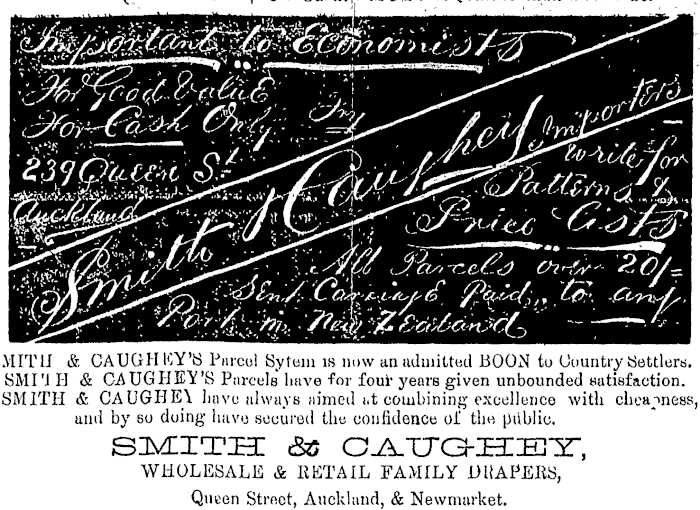 Important to Economists
For Good Value
For Cash Only Try
239 Queen St
Auckland
Smith & Caughey, Importers
Write for
Patterns &
Price Lists
All Parcels over 20/=
Sent Carriage Paid, to any
Port in New Zealand
MITH & CAUGHEY'S Parcel Sytem is now an admitted BOON to Country Settlers.
SMITH & CAUGHEY'S Parcels have for four years given unbounded satisfaction.
SMITH & CAUGHEY have always aimed at combining excellence with cheapness,
and by so doing have secured the confidence of the public.
SMITH & CAUGHEY,
WHOLESALE & RETAIL FAMILY DRAPERS,
Queen Street, Auckland, & Newmarket.